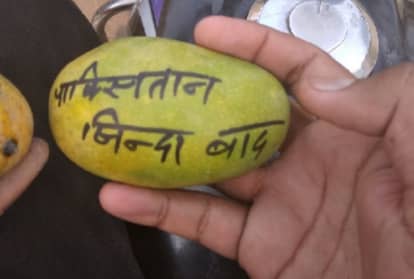 पाकिस्तान
जिन्दा बाद